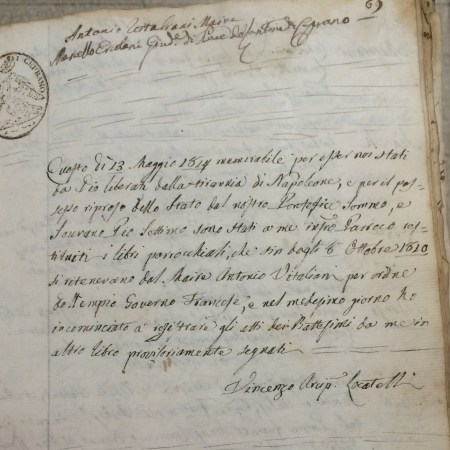 69
Antonio Vitaliani Maire
Marcello Ercolani Giud.e di Pace del Cantone di Ceprano
DI CEPRANO
Questo dì 13 Maggio 1814 memorabile per esser noi stati
da Dio liberati dalla tirannia di Napoleone, e per il pos-
sesso ripreso dello Stato dal nostro Pontefice Sommo, e
Sovrano Pio Settimo sono stati a me infr̃to Parroco res-
tituiti i libri parrocchiali, che sin dagli 8 Ottobre 1810
si ritenevano dal Maire Antonio Vitaliani per ordine
dell'empio Governo Francese, e nel medesimo giorno ho
incominciato a registrare gli atti dei Battesimi da me in
altro libro provisoriamente segnati
Vincenzo Arcip. Locatelli